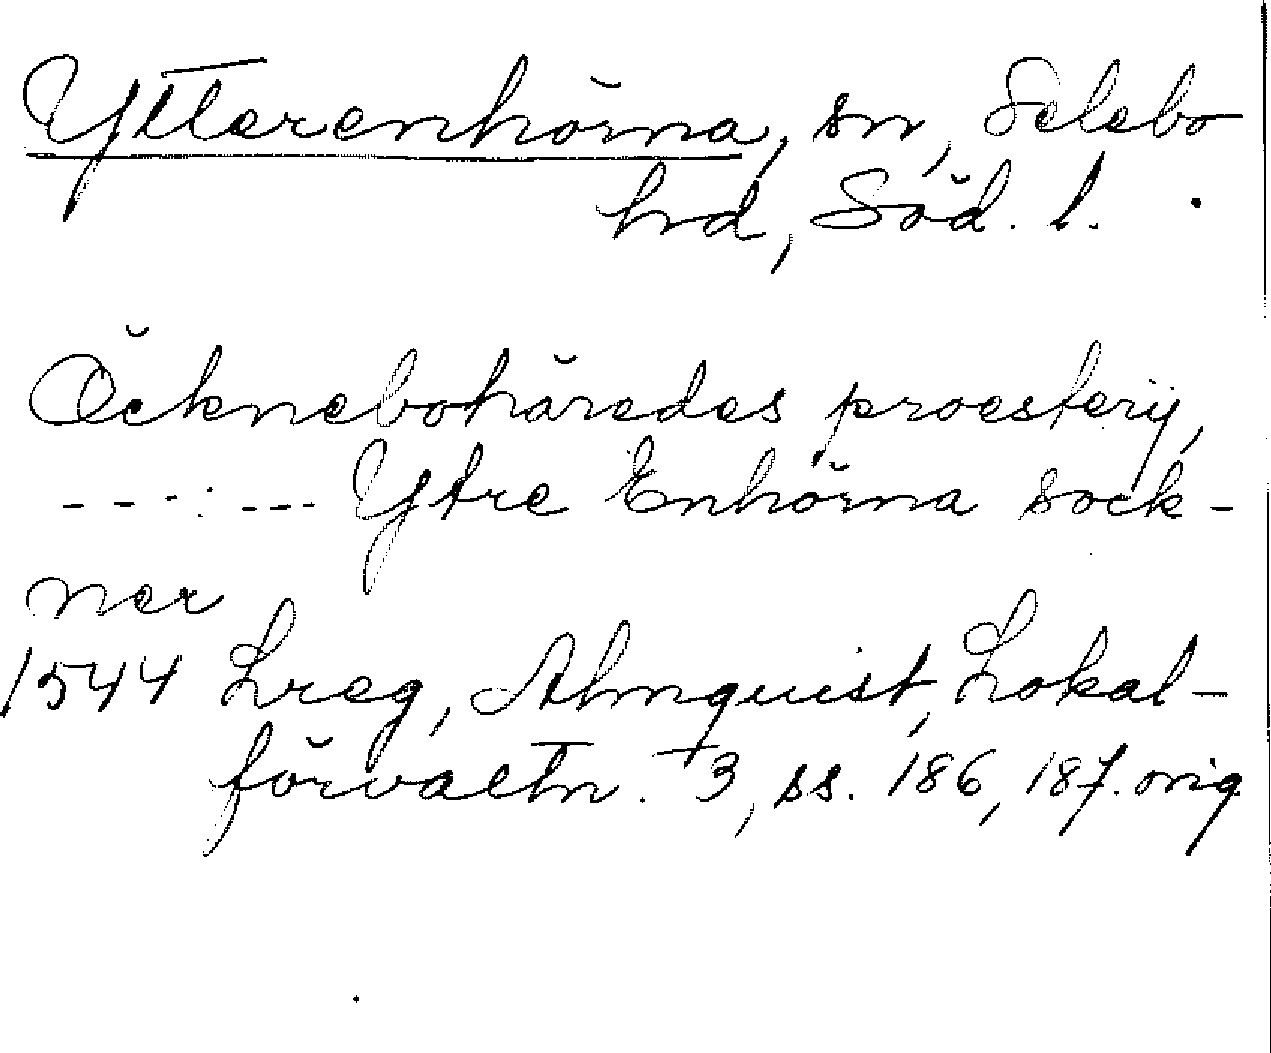 Ytterenhörna, sn, Selebo
hd, Söd. l.
Öcknebohäredes proesterij,
- - - : - - - Ytre Enhörna sock-
ner
1544 Lreg, Almquist, Lokal-
förvaltn. 3, ss. 186, 187. orig.